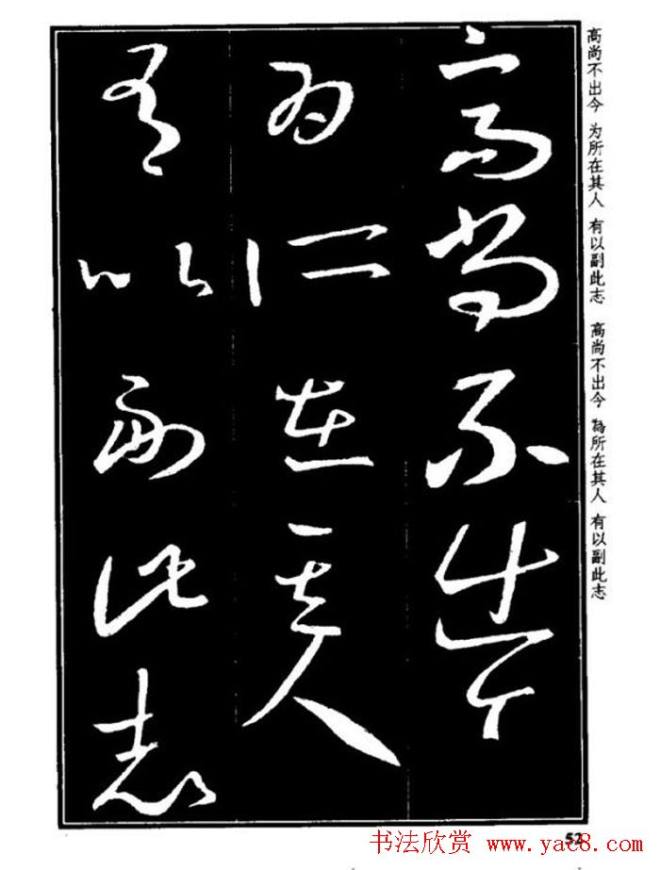 高尚不出今
为所在其人
有以副此志
高尚不出今 为所在其人 有以副此志
高尚不出今 為所在其人 有以副此志
52
书法欣赏 www.yac8.com